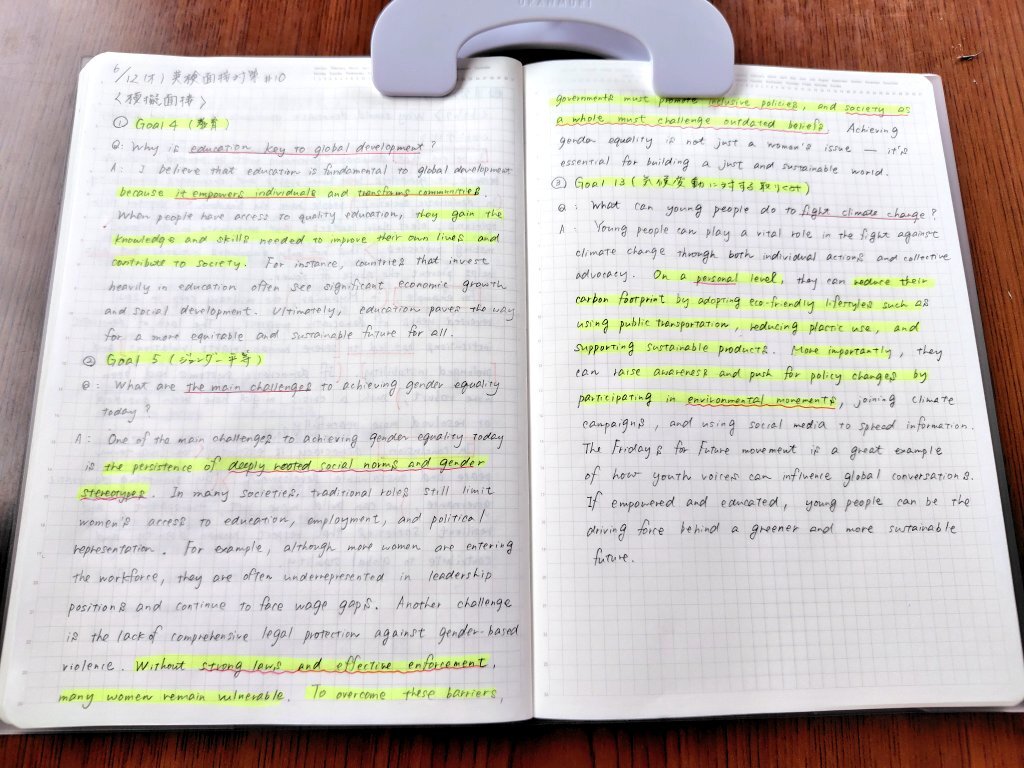 6/12(木) 英検面接対策 #10
〈模擬面接〉
① Goal 4 (教育)
Q: Why is education key to global development?
A: I believe that education is fundamental to global development
because it empowers individuals and transforms communities.
When people have access to quality education, they gain the
knowledge and skills needed to improve their own lives and
contribute to society. For instance, countries that invest
heavily in education often see significant economic growth
and social development. Ultimately, education paves the way
for a more equitable and sustainable future for all.
② Goal 5 (ジェンダー平等)
Q: What are the main challenges to achieving gender equality
today?
A: One of the main challenges to achieving gender equality today
is the persistence of deeply rooted social norms and gender
stereotypes. In many societies, traditional roles still limit
women's access to education, employment, and political
representation. For example, although more women are entering
the workforce, they are often underrepresented in leadership
positions and continue to face wage gaps. Another challenge
is the lack of comprehensive legal protection against gender-based
violence. Without strong laws and effective enforcement,
many women remain vulnerable. To overcome these barriers,
governments must promote inclusive policies, and society as
a whole must challenge outdated beliefs. Achieving
gender equality is not just a women's issue — it's
essential for building a just and sustainable world.
③ Goal 13 (気候変動に対する取り組み)
Q: What can young people do to fight climate change?
A: Young people can play a vital role in the fight against
climate change through both individual actions and collective
advocacy. On a personal level, they can reduce their
carbon footprint by adopting eco-friendly lifestyles such as
using public transportation, reducing plastic use, and
supporting sustainable products. More importantly, they
can raise awareness and push for policy changes by
participating in environmental movements, joining climate
campaigns, and using social media to spread information.
The Fridays for Future movement is a great example
of how youth voices can influence global conversations.
If empowered and educated, young people can be the
driving force behind a greener and more sustainable
future.